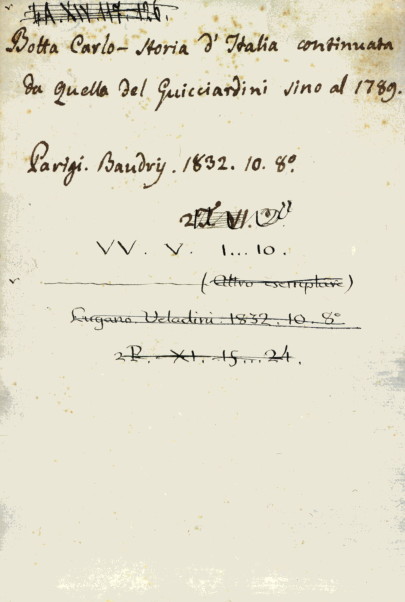 A XIV 117. 126.
Botta Carlo - Storia d'Italia continuata
da Quella del Guicciardini sino al 1789.
Parigi. Baudry. 1832. 10. 8º
VI.
VV. V. 1...10.
(Altro esemplare)
Lugano. Veladini. 1832. 10. 8º
2 P. XI. 15...24.